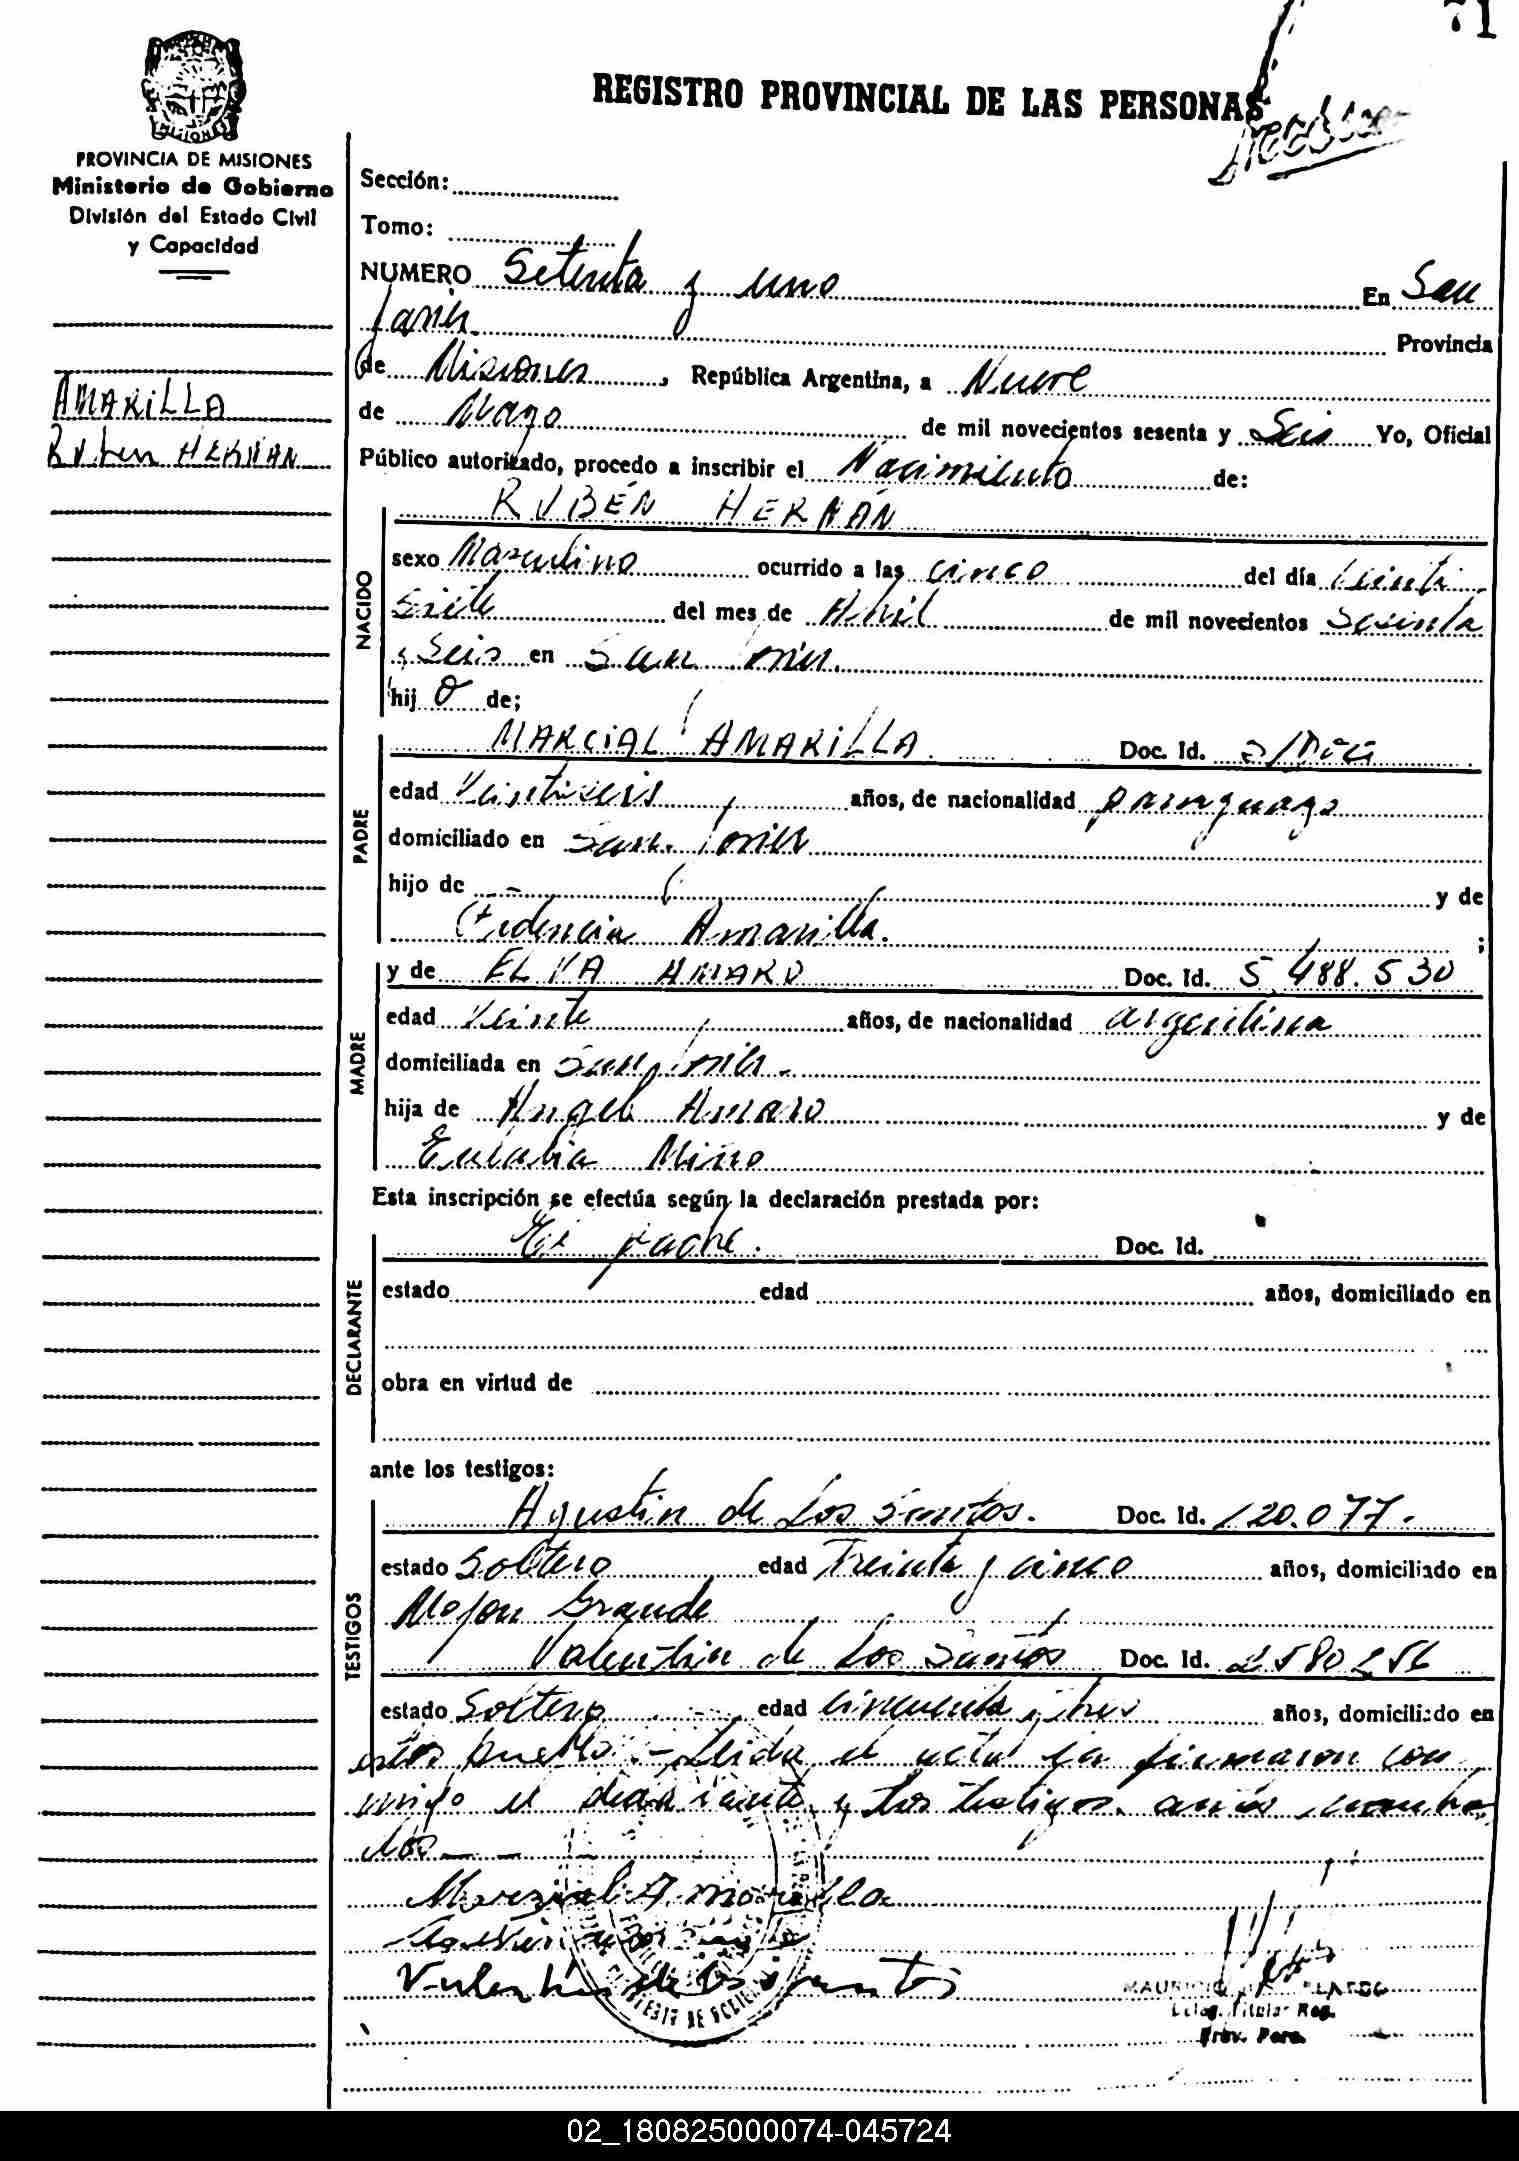 71
REGISTRO PROVINCIAL DE LAS PERSONAS
MISIONES
PROVINCIA DE MISIONES
Ministerio de Gobierno
División del Estado Civil
y Capacidad
AMARILLA
Rubén HERNAN
Sección:
Tomo:
NUMERO Setenta y uno En San
Javier. Provincia
de Misiones, República Argentina, a Nueve
de Mayo de mil novecientos sesenta y Seis Yo, Oficial
Público autorizado, procedo a inscribir el Nacimiento de:
RUBÉN HERNÁN
NACIDO
sexo Masculino ocurrido a las cinco del día veinti
siete del mes de Abril de mil novecientos Sesenta
y Seis en San Javier.
hijo de;
MARCIAL AMARILLA. Doc. Id.
PADRE
edad Veintiseis años, de nacionalidad paraguayo
domiciliado en San Javier
hijo de - y de
Amarilla. ;
y de ELVA AMARO Doc. Id. 5.488.530
MADRE
edad Veinte años, de nacionalidad argentina
domiciliada en San Javier.
hija de Angel Amaro y de
Eulalia Miño
Esta inscripción se efectúa según la declaración prestada por:
El padre. Doc. Id.
DECLARANTE
estado edad años, domiciliado en
obra en virtud de
ante los testigos:
Agustin de Los Santos. Doc. Id. 120.077.
TESTIGOS
estado Soltero edad Treinta y cinco años, domiciliado en
Mojon Grande
Valentin de Los Santos Doc. Id.
estado Soltero edad cincuenta y tres años, domiciliado en
este pueblo.- Leida el acta la firmaron con
migo el declarante y los testigos nombra
dos - -
Marcial Amarilla
Valentin de los Santos
MAURICIO
Deleg. Titular Reg.
Prov. Pers.
02_180825000074-045724